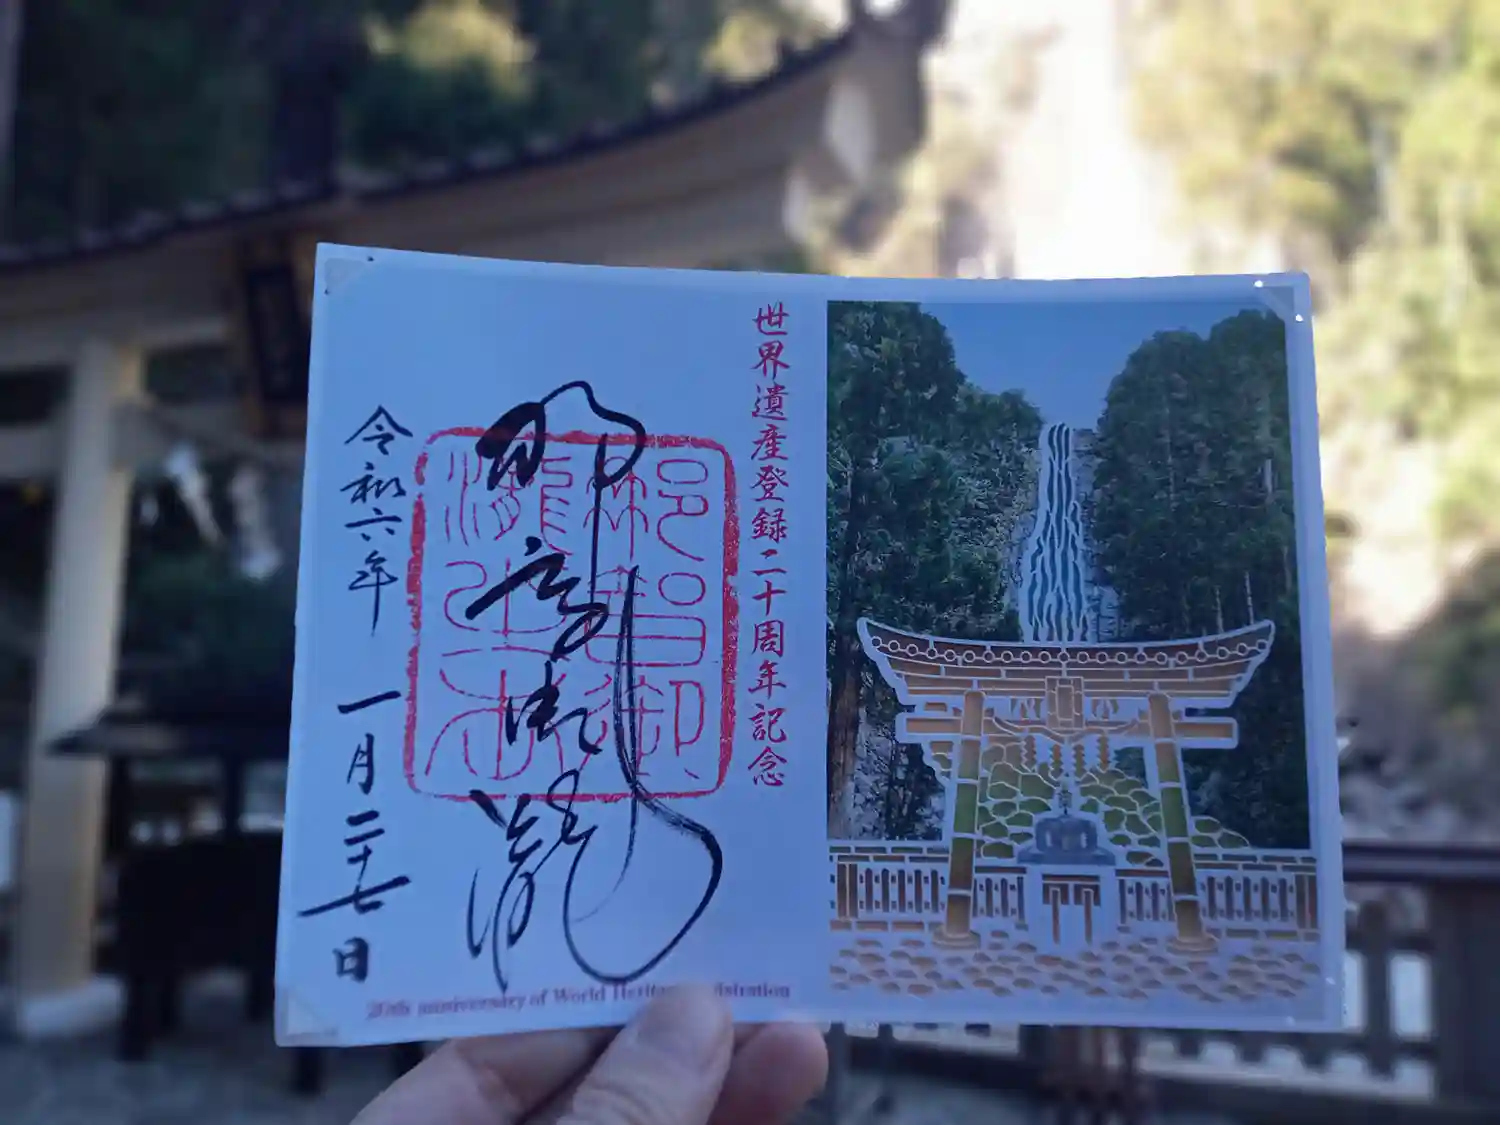 世界遺産登録二十周年記念
那智御瀧
那智御
瀧之
令和六年 一月二十七日
20th anniversary of World Heritage